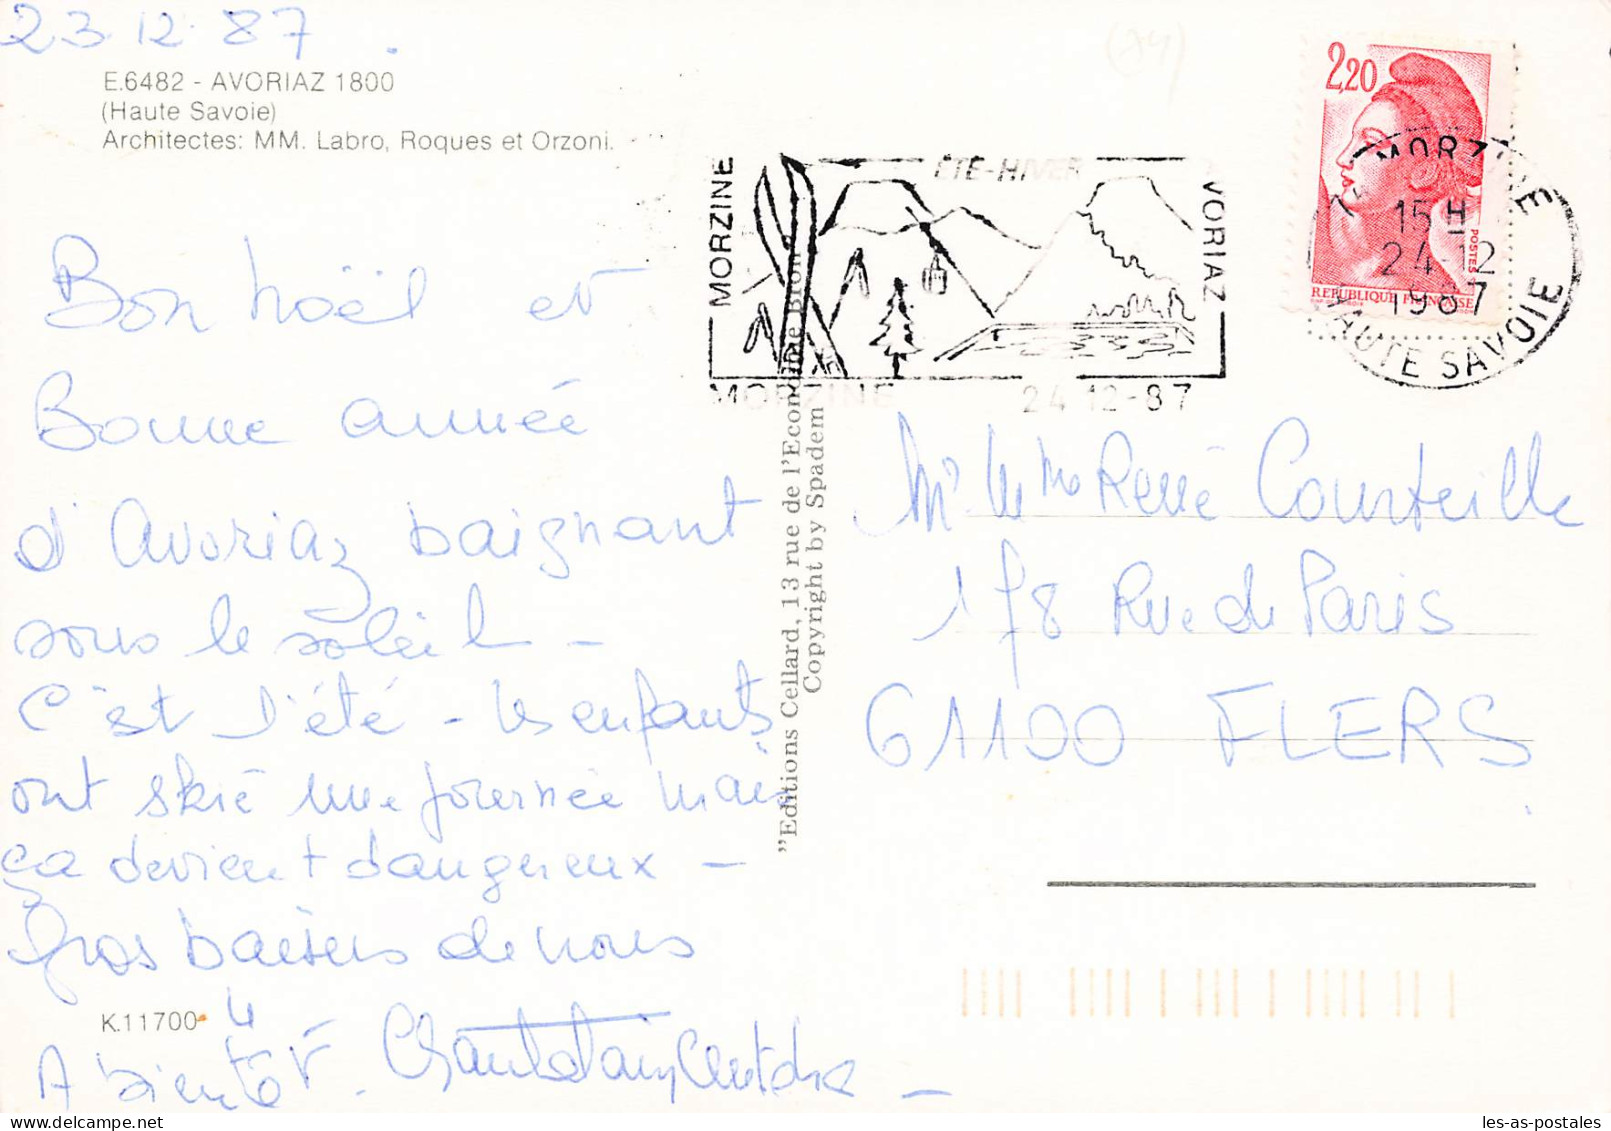 23.12.87.
E.6482 - AVORIAZ 1800
(Haute Savoie)
Architectes: MM. Labro, Roques et Orzoni.
Bon noël et
Bonne année
d'Avoriaz baignant
sous le soleil -
C'est l'été - les enfants
ont skié une journée mais
ça devient dangereux -
Gros baisers de nous
4
K.11700
A bientôt.
"Editions Cellard, 13 rue de l'Economie Bron
Copyright by Spadem
MORZINE
ÉTÉ-HIVER
VORIAZ
MORZINE 24 12-87
2,20
POSTES
REPUBLIQUE FRANÇAISE
MORZINE
15 H
24-12
1987
HAUTE SAVOIE
Mr et Mme René Courteille
178 Rue de Paris
61100 FLERS
les-as-postales